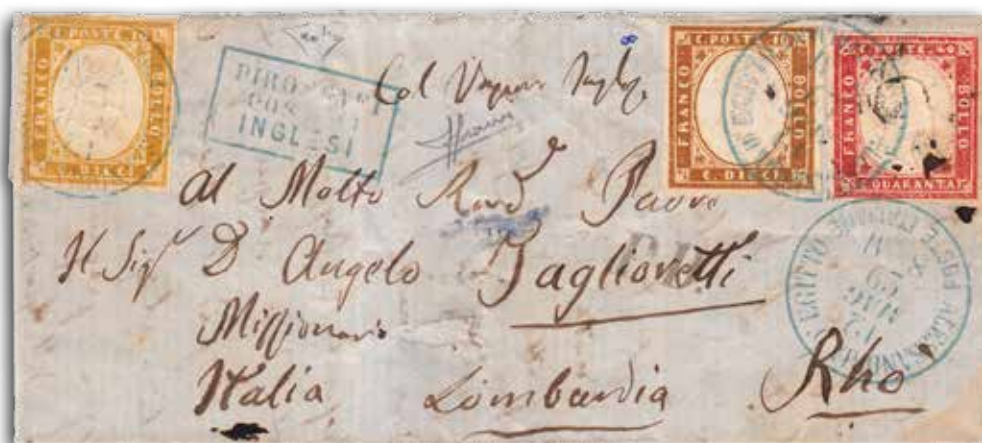 C. POSTE 10
FRANCO
BOLLO
C. DIECI
PIROSCAFI
POSTALI
INGLESI
Col Vapore Inglese
C. POSTE 10
FRANCO
BOLLO
C. DIECI
C. POSTE 40
FRANCO
BOLLO
C. QUARANTA
Al Molto Revd Padre
Il Sigr D Angelo Taglioretti
Missionario
Italia Lombardia Rho
POSTE ITALIANE
D'EGITTO
ALESSANDRIA
MAG